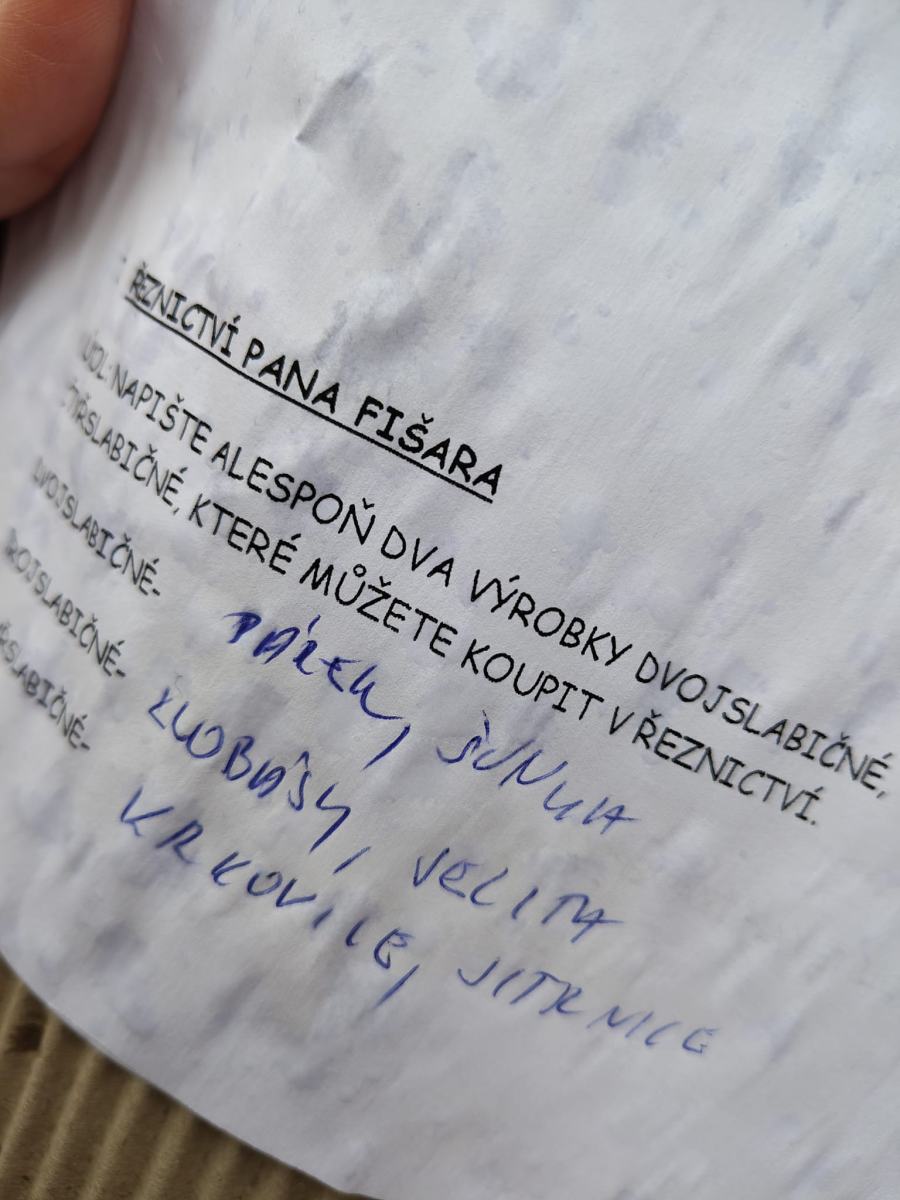 ŘEZNICTVÍ PANA FIŠARA
ÚKOL: NAPIŠTE ALESPOŇ DVA VÝROBKY DVOJSLABIČNÉ,
ČTYŘSLABIČNÉ, KTERÉ MŮŽETE KOUPIT V ŘEZNICTVÍ.
DVOJSLABIČNÉ- PÁREK, ŠUNKA
TROJSLABIČNÉ- KLOBÁSY, JELITA
ČTYŘSLABIČNÉ- KRKOVICE, JITRNICE